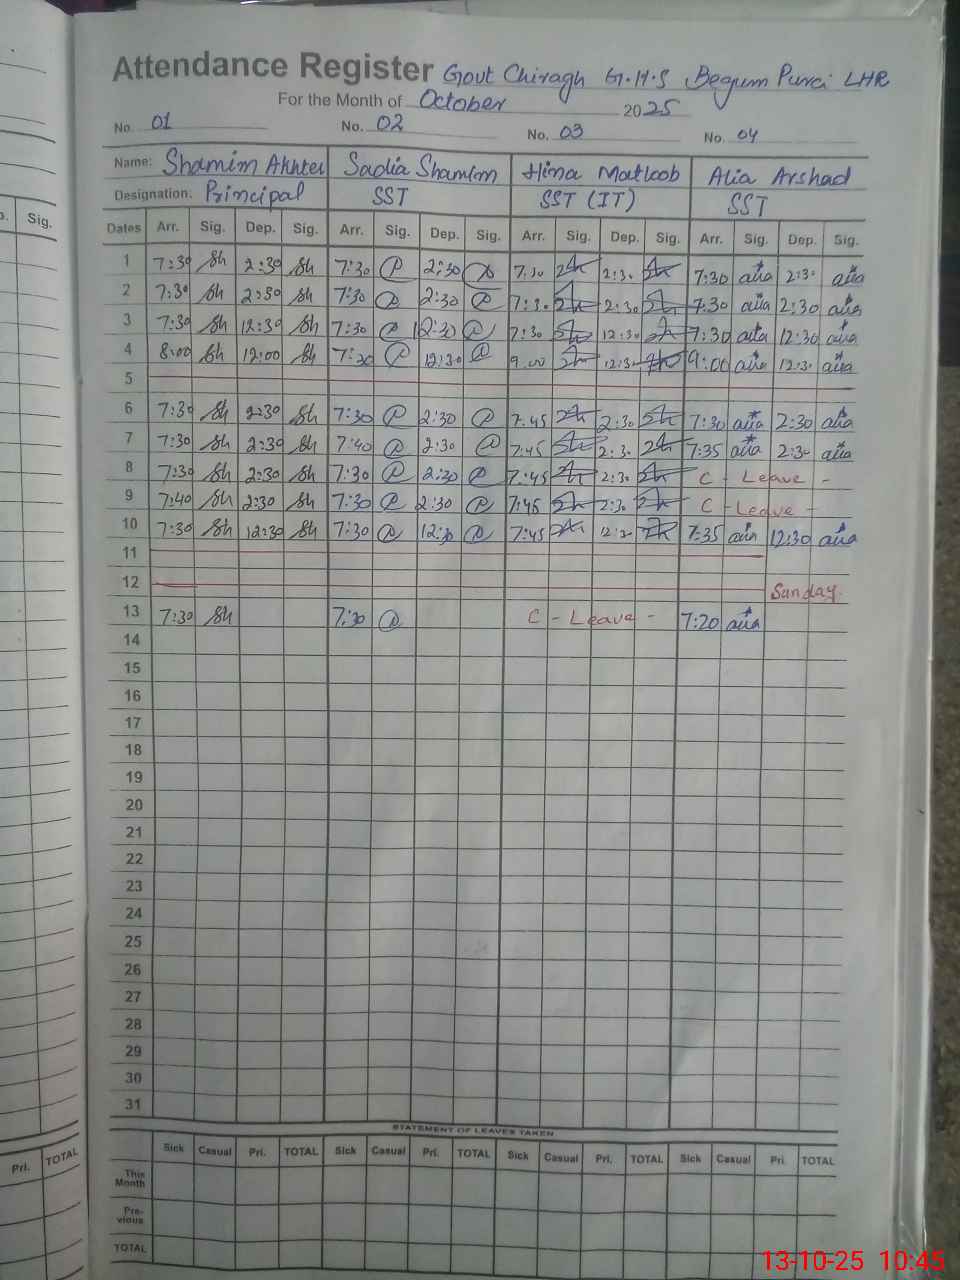 Attendance Register Govt Chiragh G.H.S Begum Purai LHR
For the Month of October 2025
No. 01 No. 02 No. 03 No. 04
Name: Shamim Akhter Sadia Shamim Hina Matloob Alia Arshad
Designation: Principal SST SST (IT) SST
Sig. Dates Arr. Sig. Dep. Sig. Arr. Sig. Dep. Sig. Arr. Sig. Dep. Sig. Arr. Sig. Dep. Sig.
1 7:30 Sh 2:30 Sh 7:30 2:30 7:30 2:30 7:30 alia 2:30 alia
2 7:30 Sh 2:30 Sh 7:30 2:30 7:30 2:30 7:30 alia 2:30 alia
3 7:30 Sh 12:30 Sh 7:30 12:30 7:30 12:30 7:30 alia 12:30 alia
4 8:00 Sh 12:00 Sh 7:30 12:30 9:00 12:30 9:00 alia 12:30 alia
5
6 7:30 Sh 2:30 Sh 7:30 2:30 7:45 2:30 7:30 alia 2:30 alia
7 7:30 Sh 2:30 Sh 7:40 2:30 7:45 2:30 7:35 alia 2:30 alia
8 7:30 Sh 2:30 Sh 7:30 2:30 7:45 2:30 C - Leave -
9 7:40 Sh 2:30 Sh 7:30 2:30 7:45 2:30 C - Leave -
10 7:30 Sh 12:30 Sh 7:30 12:30 7:45 7:35 alia 12:30 alia
11
12 Sunday.
13 7:30 Sh 7:30 C - Leave - 7:20 alia
14
15
16
17
18
19
20
21
22
23
24
25
26
27
28
29
30
31
STATEMENT OF LEAVES TAKEN
Pri. TOTAL Sick Casual Pri. TOTAL Sick Casual Pri. TOTAL Sick Casual Pri. TOTAL Sick Casual Pri. TOTAL
This
Month
Pre-
vious
TOTAL
13-10-25 10:45